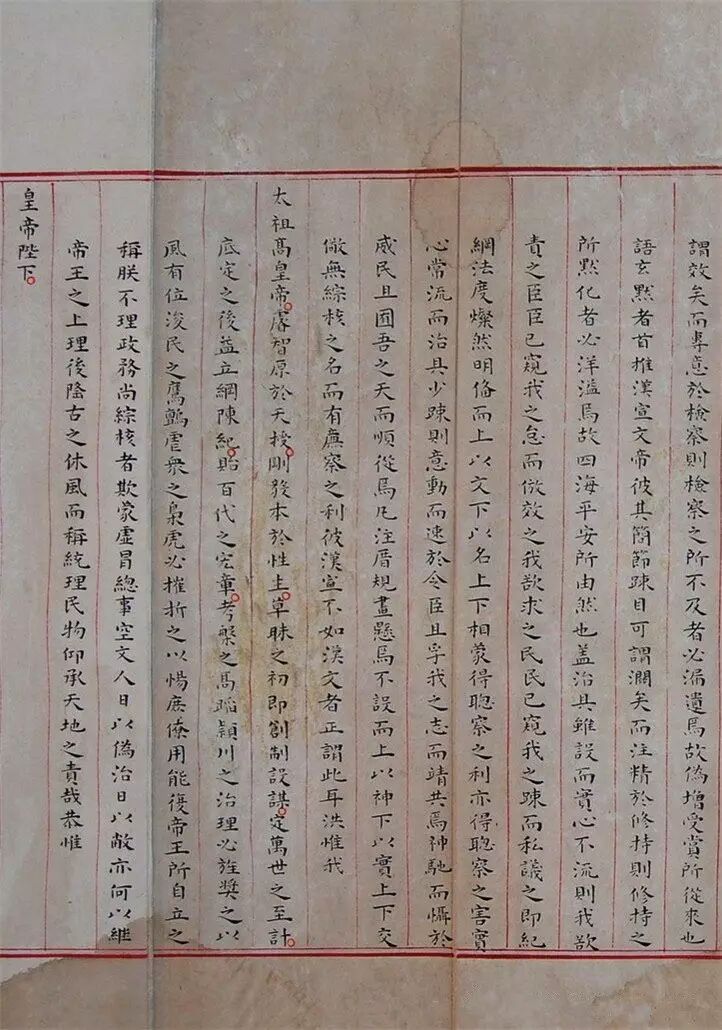 謂效矣而專意於檢察則檢察之所不及者必漏遺焉故偽增受賞所從來也
語玄默者首推漢宣文帝彼其簡節疎目可謂濶矣而注精於修持則修持之
所默化者必洋溢焉故四海平安所由然也盖治具雖設而實心不流則我欲
責之臣臣已窺我之怠而倣效之我欲求之民民已窺我之疎而私議之即紀
綱法度燦然明俻而上以文下以名上下相蒙得聦察之利亦得聦察之害實
心常流而治具少疎則意動而速於令臣且孚我之志而靖共焉神馳而懾於
威民且囿吾之天而順從焉凡注厝規畫懸焉不設而上以神下以實上下交
儆無綜核之名而有廡察之利彼漢宣不如漢文者正謂此耳洪惟我
太祖高皇帝睿智原於天授剛毅本於性生草昧之初即創制設謀定萬世之至計
底定之後益立綱陳紀貽百代之宏章考槃之高蹈潁川之治理必旌奬之以
風有位浚民之鷹鸇虐衆之梟虎必摧折之以惕庶僚用能復帝王所自立之
稱朕不理政務尚綜核者欺蒙虛冒總事空文人日以偽治日以敝亦何以継
帝王之上理後隆古之休風而稱統理民物仰承天地之責哉恭惟
皇帝陛下